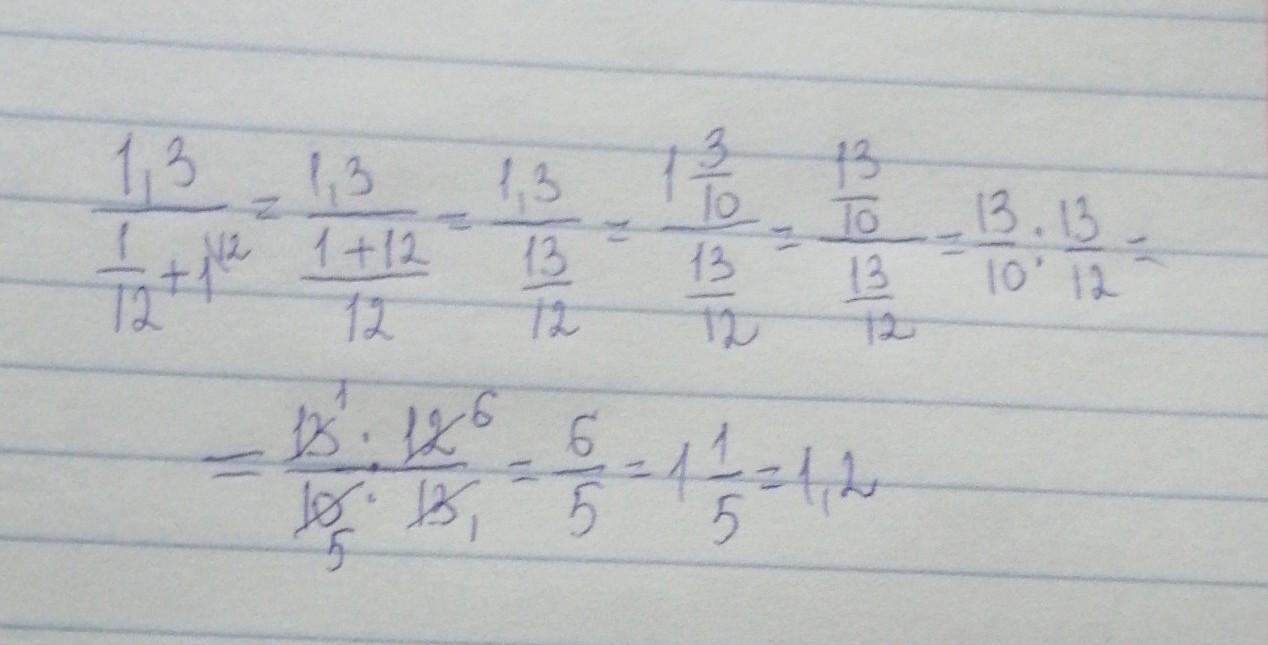 \frac{1,3}{\frac{1}{12} + 1^{\backslash 12}} = \frac{1,3}{\frac{1+12}{12}} = \frac{1,3}{\frac{13}{12}} = \frac{1\frac{3}{10}}{\frac{13}{12}} = \frac{\frac{13}{10}}{\frac{13}{12}} = \frac{13}{10} : \frac{13}{12} =
= \frac{\cancel{13}^{1} \cdot \cancel{12}^{6}}{\cancel{10}_{5} \cdot \cancel{13}_{1}} = \frac{6}{5} = 1\frac{1}{5} = 1,2